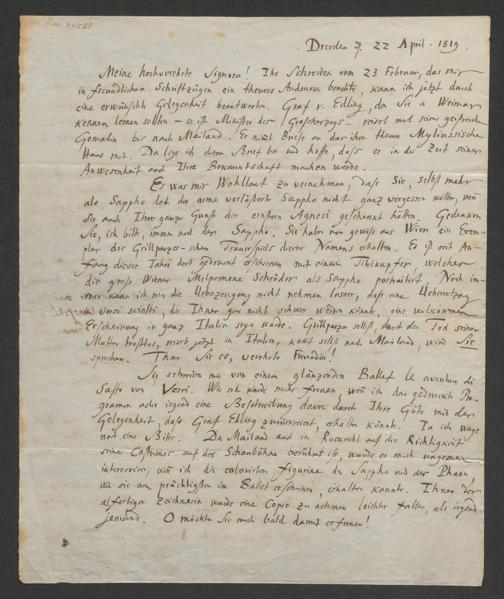 Dresden d. 22 April. 1819.
Meine hochverehrte Signora! Ihr Schreiben vom 23 Februar, das mir
in freundlichen Schriftzügen ein theures Andenken brachte, kann ich jetzt durch
eine erwünschte Gelegenheit beantworten. Graf v. Edling, den Sie in Weimar
kennen lernen sollten – er ist Minister des Grosherzogs – reiset mit seiner geistreichen
Gemalin bis nach Mailand. Er nimt Briefe an das ihm theure Myliussische
Haus mit. Da lege ich diesen Brief bei und hoffe, dass er in der Zeit seiner
Anwesenheit auch Ihre Bekanntschaft machen werde.
Es war mir Wohllaut zu vernehmen, dass Sie, selbst mehr
als Sappho doch die arme verlästerte Sappho nicht ganz vergessen wollen, wenn
Sie auch Ihre ganze Gunst der ernstern Agnesi geschenkt hätten. Gedenken
Sie, ich bitte, immer noch der Sappho. Sie haben nun gewiss aus Wien ein Exem-
plar des Grillparzer-schen Trauerspiels dieses Namens erhalten. Es ist seit An-
fang dieses Jahrs dort gedruckt erschienen mit einem Titelkupfer, welcher
die grosse Wiener Melpomene Schröder als Sappho porträtirt. Noch im-
mer kann ich mir die Ueberzeugung nicht nehmen lassen, dass eine Uebersetzung
in versi sciolti, die Ihnen gar nicht schwer werden könnte, eine vollkommene
Erscheinung in ganz Italia seyn würde. Grillparzer selbst, durch den Tod seiner
Mutter trostlos, reiset jetzt in Italien, kömt selbst nach Mailand, wird Sie
sprechen. Thun Sie es, verehrte Freundin!
Sie schreiben mir von einem glänzenden Ballet le aventure di
Saffo von Verri. Wie sehr würde michs freuen, wenn ich das gedruckte Pro-
gramm oder irgend eine Beschreibung davon durch Ihre Güte mit der
Gelegenheit, dass Graf Edling zurückreiset, erhalten könnte. Ja ich wage
noch eine Bitte. Da Mailand auch in Rücksicht auf die Richtigkeit
seiner Costumes auf der Schaubühne berühmt ist, würde es mich ungemein
interessiren, wenn ich die colorirten figurine der Sappho und des Phaon
wie sie am prächtigsten im Ballet erscheinen, erhalten könnte. Ihnen der
allfertigen Zeichnerin würde eine Copie zu nehmen leichter fallen, als irgend
jemand. O möchten Sie mich bald damit erfreuen!